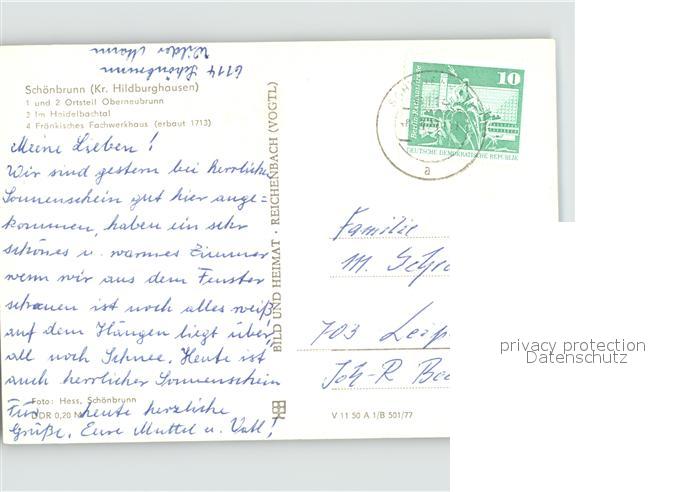 6114 Schönbrunn
Wilder Mann
Schönbrunn (Kr. Hildburghausen)
1 und 2 Ortsteil Oberneubrunn
3 Im Haidelbachtal
4 Fränkisches Fachwerkhaus (erbaut 1713)
Meine Lieben!
Wir sind gestern bei herrlichem
Sonnenschein gut hier ange=
kommen, haben ein sehr
schönes u. warmes Zimmer
wenn wir aus dem Fenster
schauen ist noch alles weiß
auf dem Hängen liegt über,
all noch Schnee. Heute ist
auch herrlicher Sonnenschein
Foto: Hess, Schönbrunn
Für heute herzliche
DDR 0,20 M
Grüße. Eure Mutti u. Vati!
BILD UND HEIMAT · REICHENBACH (VOGTL)
V 11 50 A 1/B 501/77
10
Berlin
DEUTSCHE DEMOKRATISCHE REPUBLIK
a
Familie
M.
703 Leip
Joh-R
privacy protection
Datenschutz